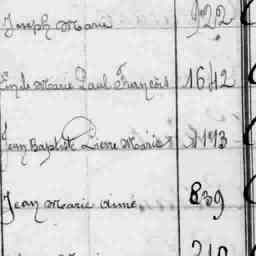 Joseph Marie 922
Emile Marie Paul François 1642
Jean Baptiste Pierre Marie
Jean Marie Aimé 839